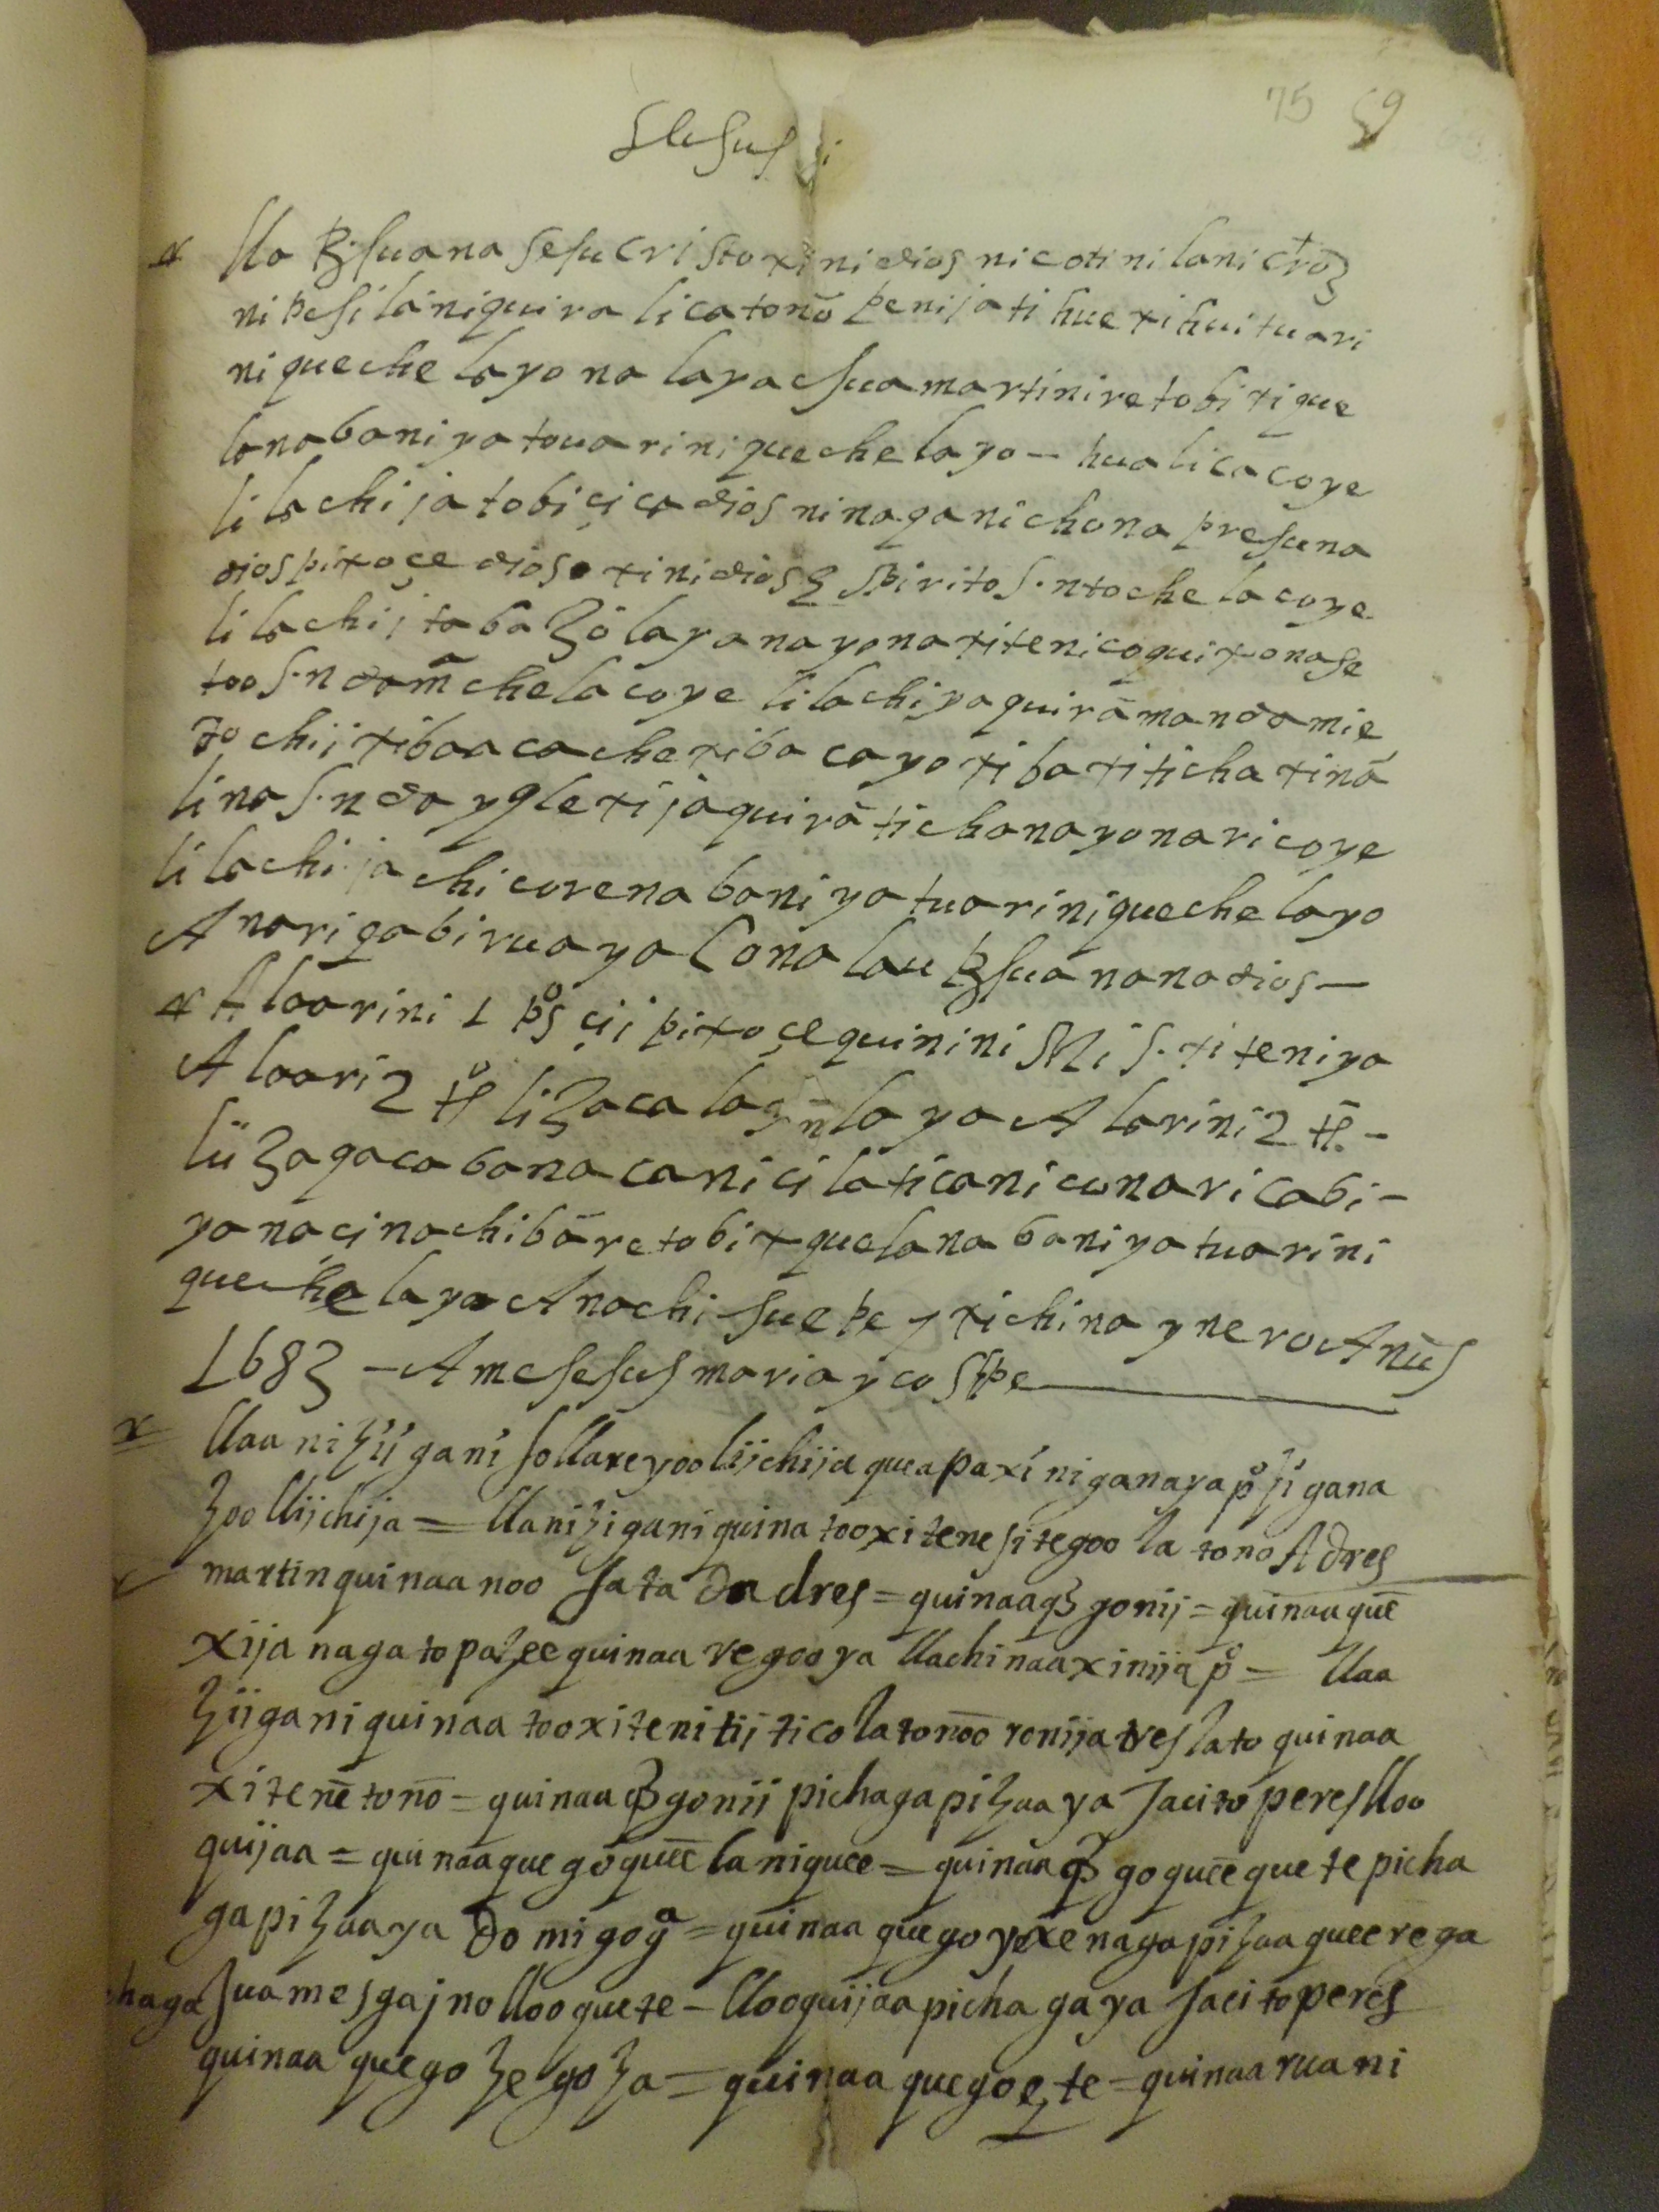 75 59
Jesus
lla Bisuana Jesu cristo xini dios nicoti ni lani croz
ni pesilaniquira licatono penijati huexihuituari
niquechelayo na laya Jua martini retobitique
lanabaniyatouariniquechelayo – hualicacoye
lilachija tobiçica dios ninaganichona presuna
dios pixoçe dios xini dios Spirito S.nto chela coye
lilachij tabaZolayana yona xiteni coquixonase
too S.n dama chelacoye lilachiyaquira mandamie
to chij xibaa ca che xiba cayo xiba titicha xina
lina S.nda yglexija quira tichanayonari coye
lilachija chicorenabaniyatuariniquechelayo
Anarigabiruaya Cona lau Bisuana na dios –
Aloorini 1 pos çij pixoçe quinini Mis. xiteniya
Aloari 2 to liZaca la laya Alarini 2 to –
lii Zagacabana canicilaticani cunaricabi –
yanacinachibaretobixquelanabaniyatuarini
quechelaya Anachi Juepe y xichina ynero Anus
1683 – Ame Jesus maria y cosepe
llaa niZijgani sollareyoo lijchija queapaxi niganaya po Zigana
Zoo llijchija = llaniZigani quina tooxitene sitegoo la tono Adres
martin quinaa noo sata Dadres = quinaaq gonij = quinaa que
xija nagatopaZee quinaa regooya llachinaaxinija po = llaa
Zijgani quinaa tooxiteni tij ticola tonoo ronija treslato quinaa
xitene tono = quinaa q gonii pichagapiZaaya Jacito peres lloo
quijaa = quinaa que goquee laniquee = quinaa q goquee quete picha
gapiZaaya Domigo ga = quinaa quego yoxe nagapiZaa queerega
haga Juamesgajno lloo quete – llooquijaa pichagaya Jacito peres
quinaa quego Ze go Za = quinaa quego e te = quinaa ruani